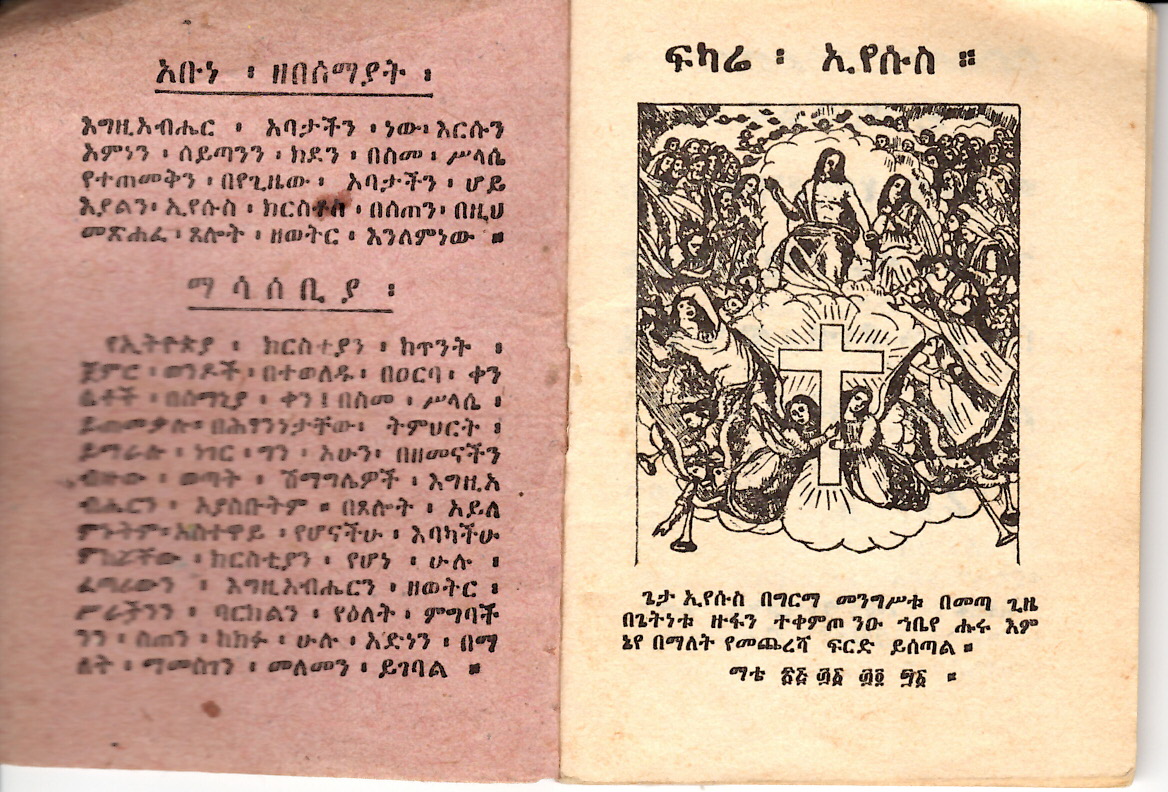 አቡነ ፡ ዘበሰማያት ፡
እግዚአብሔር ፡ አባታችን ፡ ነው፡ እርሱን
እምነን ፡ ሰይጣንን ፡ ክደን ፡ በስመ ፡ ሥላሴ
የተጠመቅን ፡ በየጊዜው ፡ አባታችን ፡ ሆይ
እያልን፡ ኢየሱስ ፡ ክርስቶስ ፡ በሰጠን፡ በዚህ
መጽሐፈ ፡ ጸሎት ፡ ዘወትር ፡ እንለምነው ።
ማሳሰቢያ ፡
የኢትዮጵያ ፡ ክርስተያን ፡ ከጥንት ፡
ጀምሮ ፡ ወንዶች ፡ በተወለዱ ፡ በዐርባ ፡ ቀን
ሴቶች ፡ በሰማኒያ ፡ ቀን ፤ በስመ ፡ ሥላሴ ፡
ይጠመቃሉ። በሕፃንነታቸው፡ ትምህርት ፡
ይማራሉ ፡ ነገር ፡ ግን ፡ አሁን፡ በዘመናችን
ብዙው ፡ ወጣት ፡ ሽማግሌዎች ፡ እግዚአ
ብሔርን ፡ አያስቡትም ። በጸሎት ፡ አይለ
ምኑትም። አስተዋይ ፡ የሆናችሁ ፡ እባካችሁ
ምከሯቸው ፡ ክርስቲያን ፡ የሆነ ፡ ሁሉ ፡
ፈጣሪውን ፡ እግዚአብሔርን ፡ ዘወትር ፡
ሥራችንን ፡ ባርክልን ፡ የዕለት ፡ ምግባች
ንን ፡ ስጠን ፡ ከክፉ ፡ ሁሉ ፡ አድነን ፡ በማ
ለት ፡ ማመስገን ፡ መለመን ፡ ይገባል ።
ፍካሬ ፡ ኢየሱስ ።
ጌታ ኢየሱስ በግርማ መንግሥቱ በመጣ ጊዜ
በጌትነቱ ዙፋን ተቀምጦ ንዑ ኀቤየ ሑሩ እም
ኔየ በማለት የመጨረሻ ፍርድ ይሰጣል ።
ማቴ ፳፭ ፴፩ ፴፬ ፵፩ ።